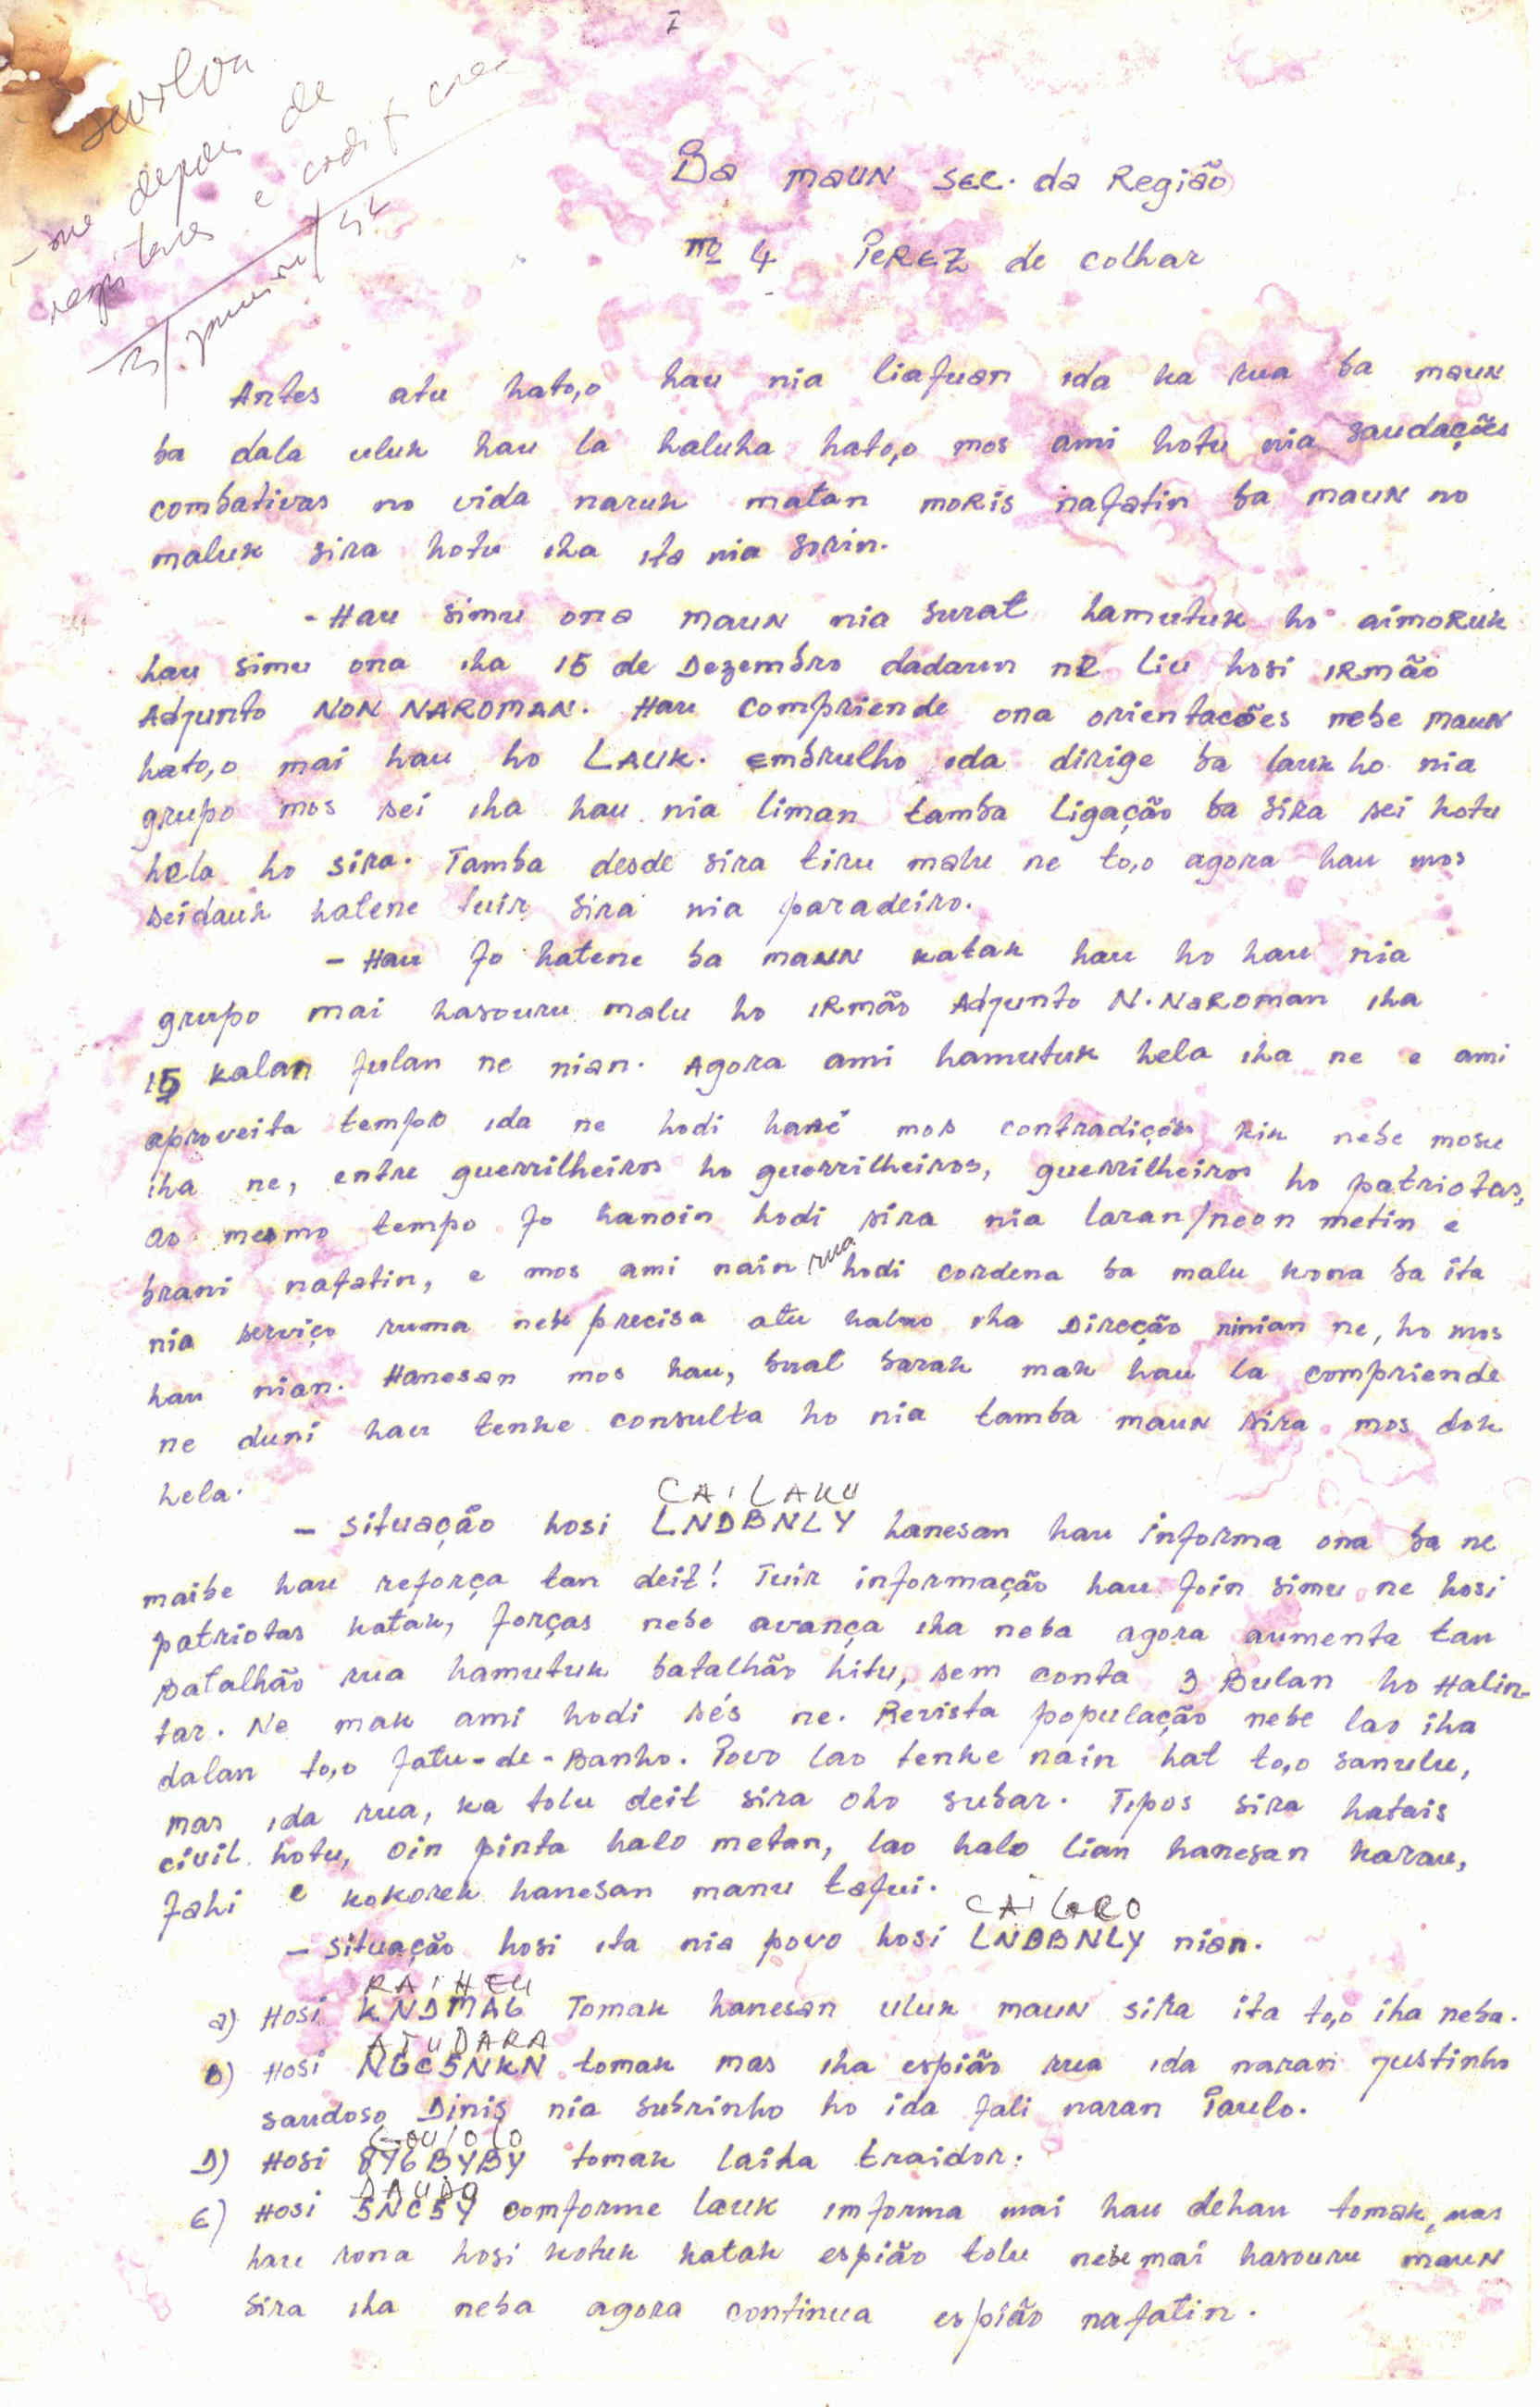 I
- me depois de
registares e codif
Ba maun sec. da Região
nº 4 PEREZ de colhar
Antes atu hato,o hau nia liafuan ida ka rua ba maun
ba dala uluk hau la haluha hato,o mos ami hotu nia saudações
combativas no vida naruk matan moris nafatin ba maun no
maluk sira hotu iha ita nia sorin.
- Hau simu ona maun nia surat hamutuk ho aimoruk
hau simu ona iha 15 de Dezembro dadaun ne liu hosi irmão
Adjunto NON NAROMAN. Hau compriende ona orientacões nebe maun
hato,o mai hau ho LAUK. Embrulho ida dirige ba lauk ho nia
grupo mos sei iha hau nia liman tamba ligação ba sira sei kotu
hela ho sira. Tamba desde sira tiru malu ne to,o agora hau mos
seidauk hatene tuir sira nia paradeiro.
- Hau fo hatene ba maun katak hau ho hau nia
grupo mai hasouru malu ho irmão Adjunto N. Naroman iha
15 kalan fulan ne nian. Agora ami hamutuk hela iha ne e ami
aproveita tempo ida ne hodi haré mos contradições kik nebe mosu
iha ne, entre guerrilheiros ho guerrilheiros, guerrilheiros ho patriotas,
ao mesmo tempo fo hanoin hodi sira nia laran/neon metin e
brani nafatin, e mos ami nain rua hodi cordena ba malu kona ba ita
nia serviço ruma nebe precisa atu halao iha Direcção ninian ne, ho mos
hau nian. Hanesan mos hau, buat barak mak hau la compriende
ne duni hau tenke consulta ho nia tamba maun sira mos dok
hela.
CAILAKU
- Situação hosi LNDBNLY hanesan hau informa ona ba ne
maibe hau reforça tan deit! Tuir informação hau foin simu ne hosi
patriotas katak, forças nebe avança iha neba agora aumenta tan
Batalhão rua hamutuk batalhão hitu, sem conta 3 Bulan ho Halin-
tar. Ne mak ami hodi sés ne. Revista população nebe lao iha
dalan to,o fatu-de-Banho. Povo lao tenke nain hat to,o sanulu,
mas ida rua, ka tolu deit sira oho subar. Tipos sira hatais
civil hotu, oin pinta halo metan, lao halo lian hanesan karau,
fahi e kokorek hanesan manu tafui.
- Situação hosi ita nia povo hosi LNDBNLY nian.
RAIHEU
a) Hosi KNDMAG Tomak hanesan uluk maun sira ita to,o iha neba.
ATUDARA
B) Hosi NGC5NKN tomak mas iha espião rua ida naran Justinho
saudoso Dinis nia subrinho ho ida fali naran Paulo.
GOULOLO
D) Hosi 8Y6BYBY tomak laiha traidor.
DAUDO
E) Hosi 5NC5Y comforme lauk imforma mai hau dehan tomak, mas
hau rona hosi kotuk katak espião tolu nebe mai hasouru maun
sira iha neba agora continua espião nafatin.